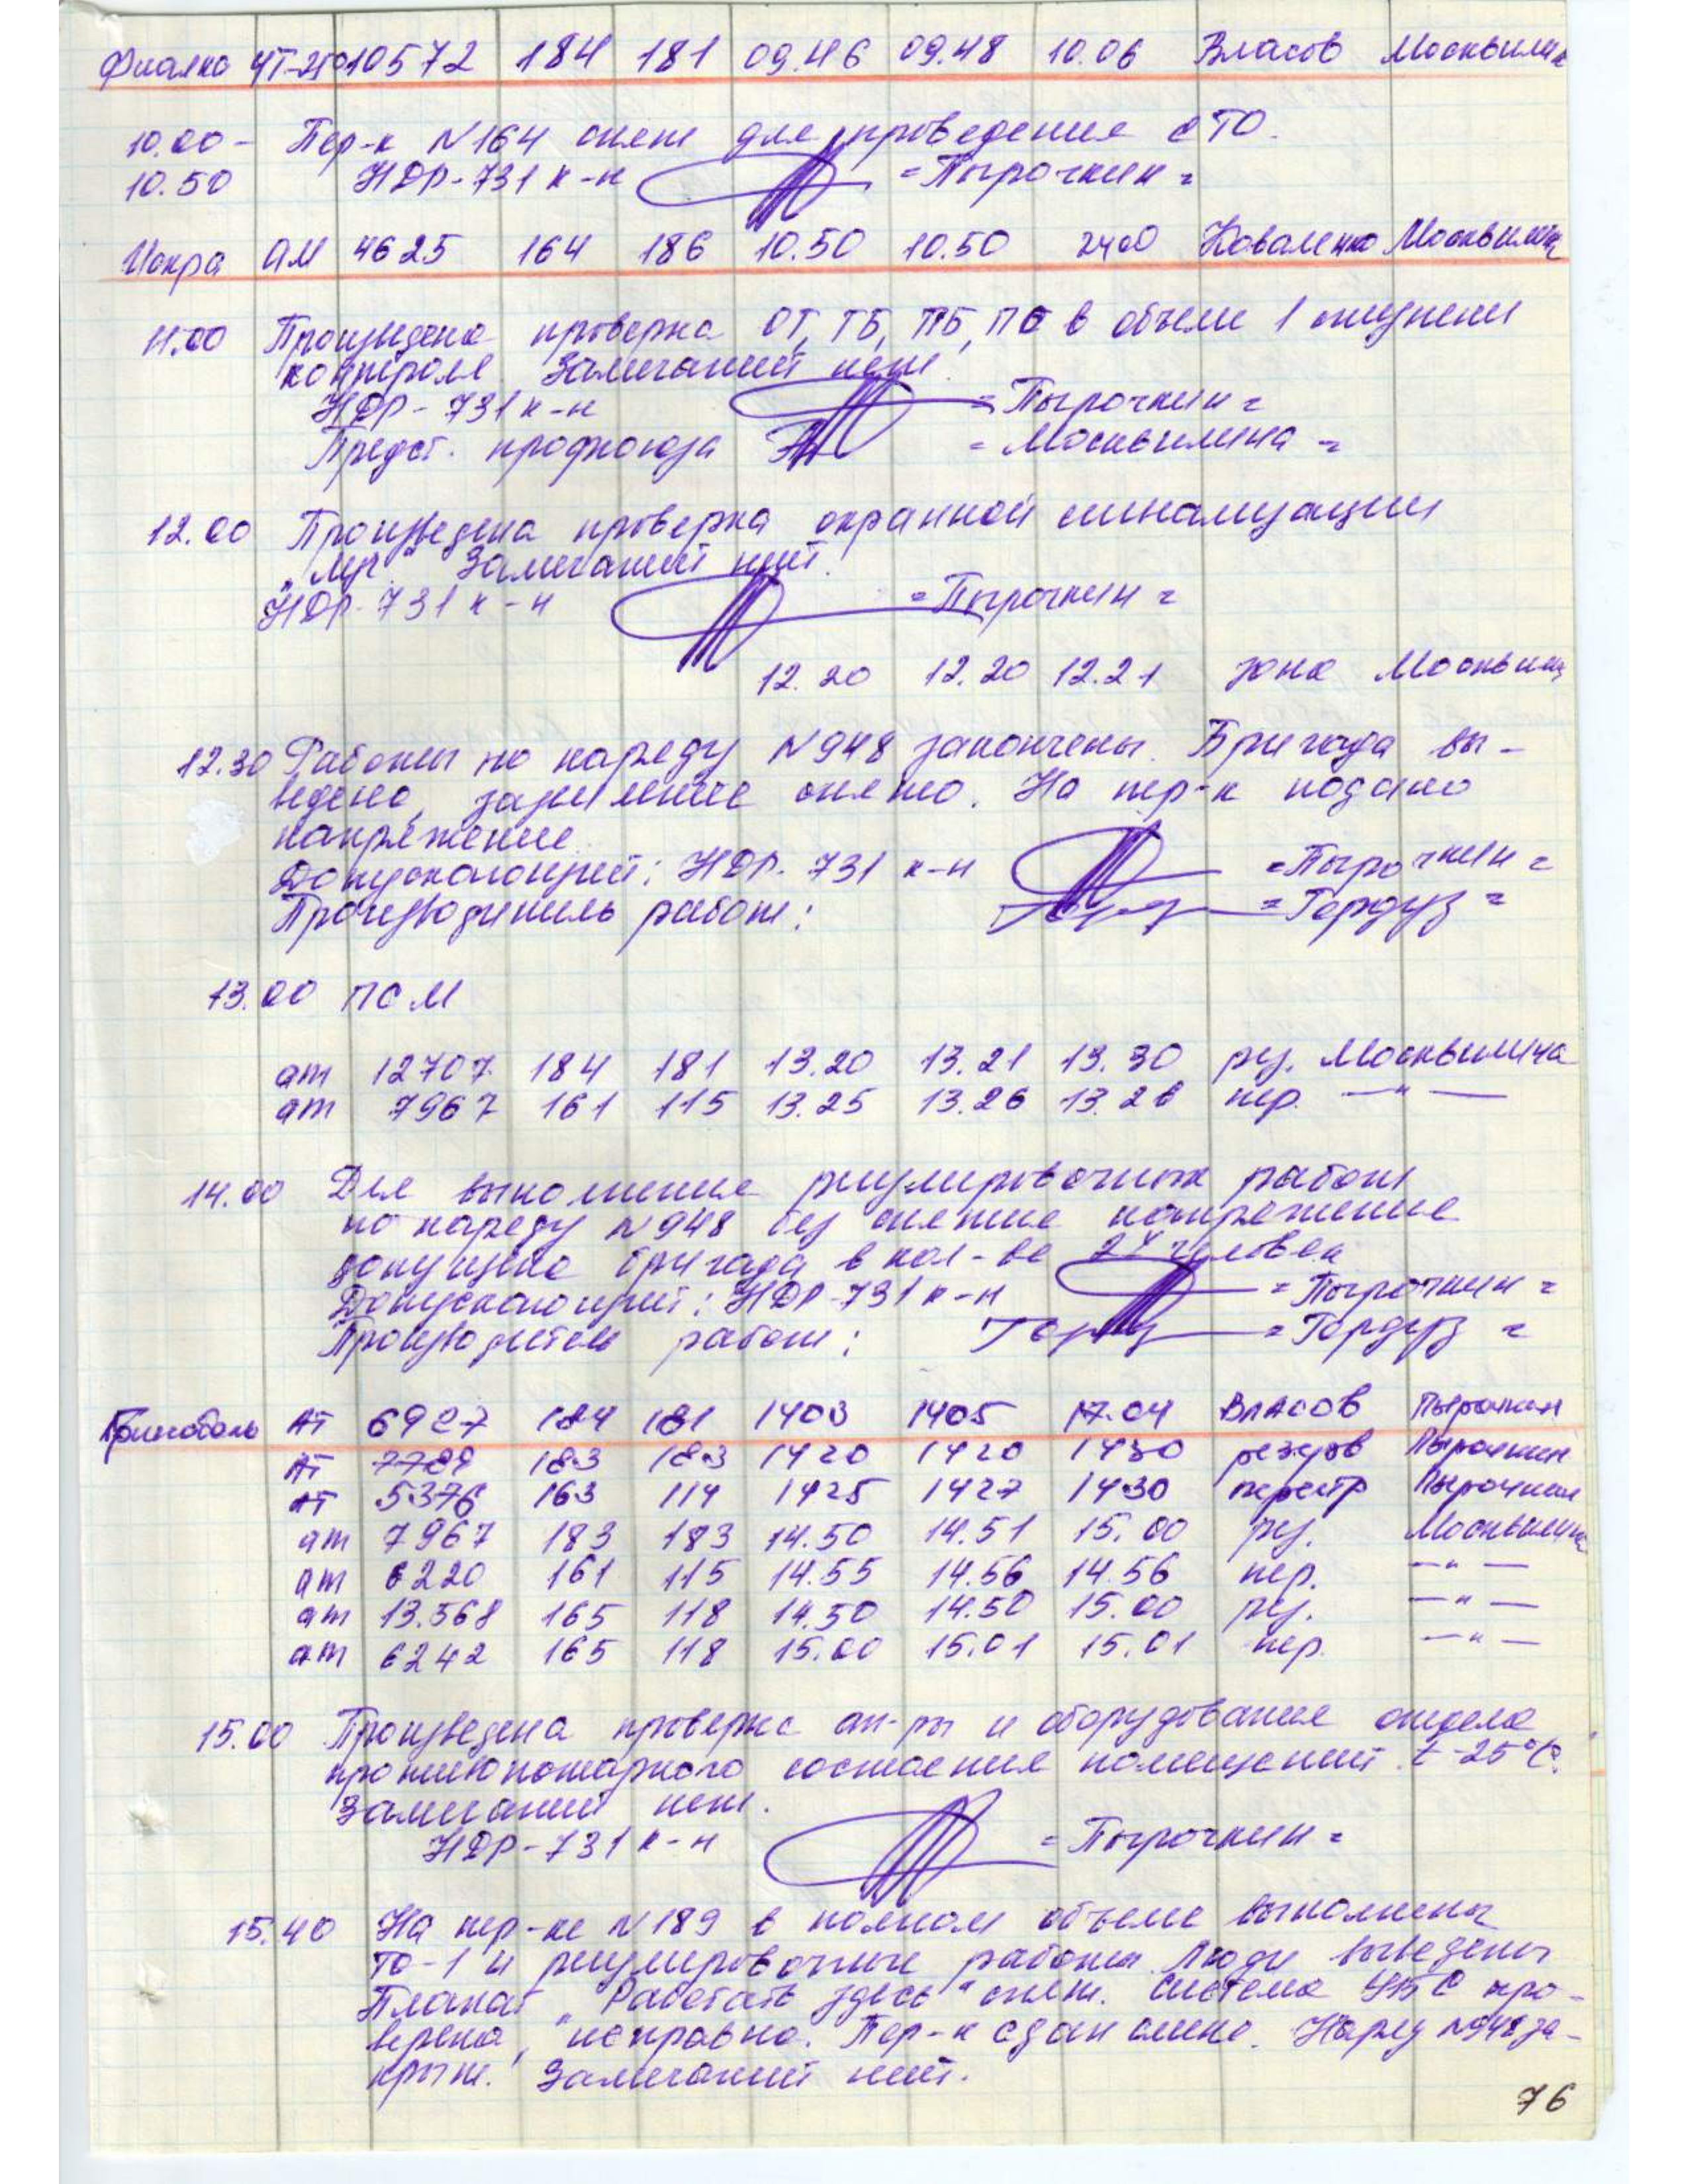 Фиалка ЧТ-250 10572 184 181 09.46 09.48 10.06 Власов Москвилин
10.00- Пер-к N164 снят для проведения с ТО.
10.50 НДР-731 к-н =Пырочкин=
Искра АМ 4625 164 186 10.50 10.50 2400 Коваленко Москвилина
11.00 Произведена проверка ОТ, ТБ, ПБ, ПС в объеме 1 ступени
контроля. Замечаний нет.
НДР-731 к-н =Пырочкин=
Предст. профсоюза =Москвилина=
12.00 Произведена проверка охранной сигнализации
"Луч" Замечаний нет.
НДР-731 к-н =Пырочкин=
12.20 12.20 12.21 зона Москвил
12.30 Работы по наряду N948 закончены. Бригада вы-
ведена, заземление снято. На пер-к подано
напряжение.
Допускающий: НДР-731 к-н =Пырочкин=
Производитель работ: =Гордуз=
13.00 ПСМ
ат 12707 184 181 13.20 13.21 13.30 рез. Москвилина
ат 7967 161 115 13.25 13.26 13.26 пер. —"—
14.00 Для выполнения регулировочных работ
по наряду N948 без снятия напряжения
допущена бригада в кол-ве 2х человек
Допускающий: НДР-731 к-н =Пырочкин=
Производитель работ: =Гордуз=
АТ 6927 184 181 1403 1405 17.04 Власов Пырочкин
АТ 7789 183 183 1420 1420 1430 резерв Пырочкин
АТ 5376 163 114 1425 1427 1430 перестр Пырочкин
ат 7967 183 183 14.50 14.51 15.00 рез. Москвилина
ат 6220 161 115 14.55 14.56 14.56 пер. —"—
ат 13.568 165 118 14.50 14.50 15.00 рез. —"—
ат 6242 165 118 15.00 15.01 15.01 пер. —"—
15.00 Произведена проверка ап-ры и оборудования отдела
противопожарного состояния помещений. t-25°С.
Замечаний нет.
НДР-731 к-н =Пырочкин=
15.40 На пер-ке N189 в полном объеме выполнены
ТО-1 и регулировочные работы. Люди выведены
Плакат "Работать здесь" снят. Система УБС про-
верена, исправна. Пер-к сдан смене. Наряд N948 за-
крыт. Замечаний нет.
76